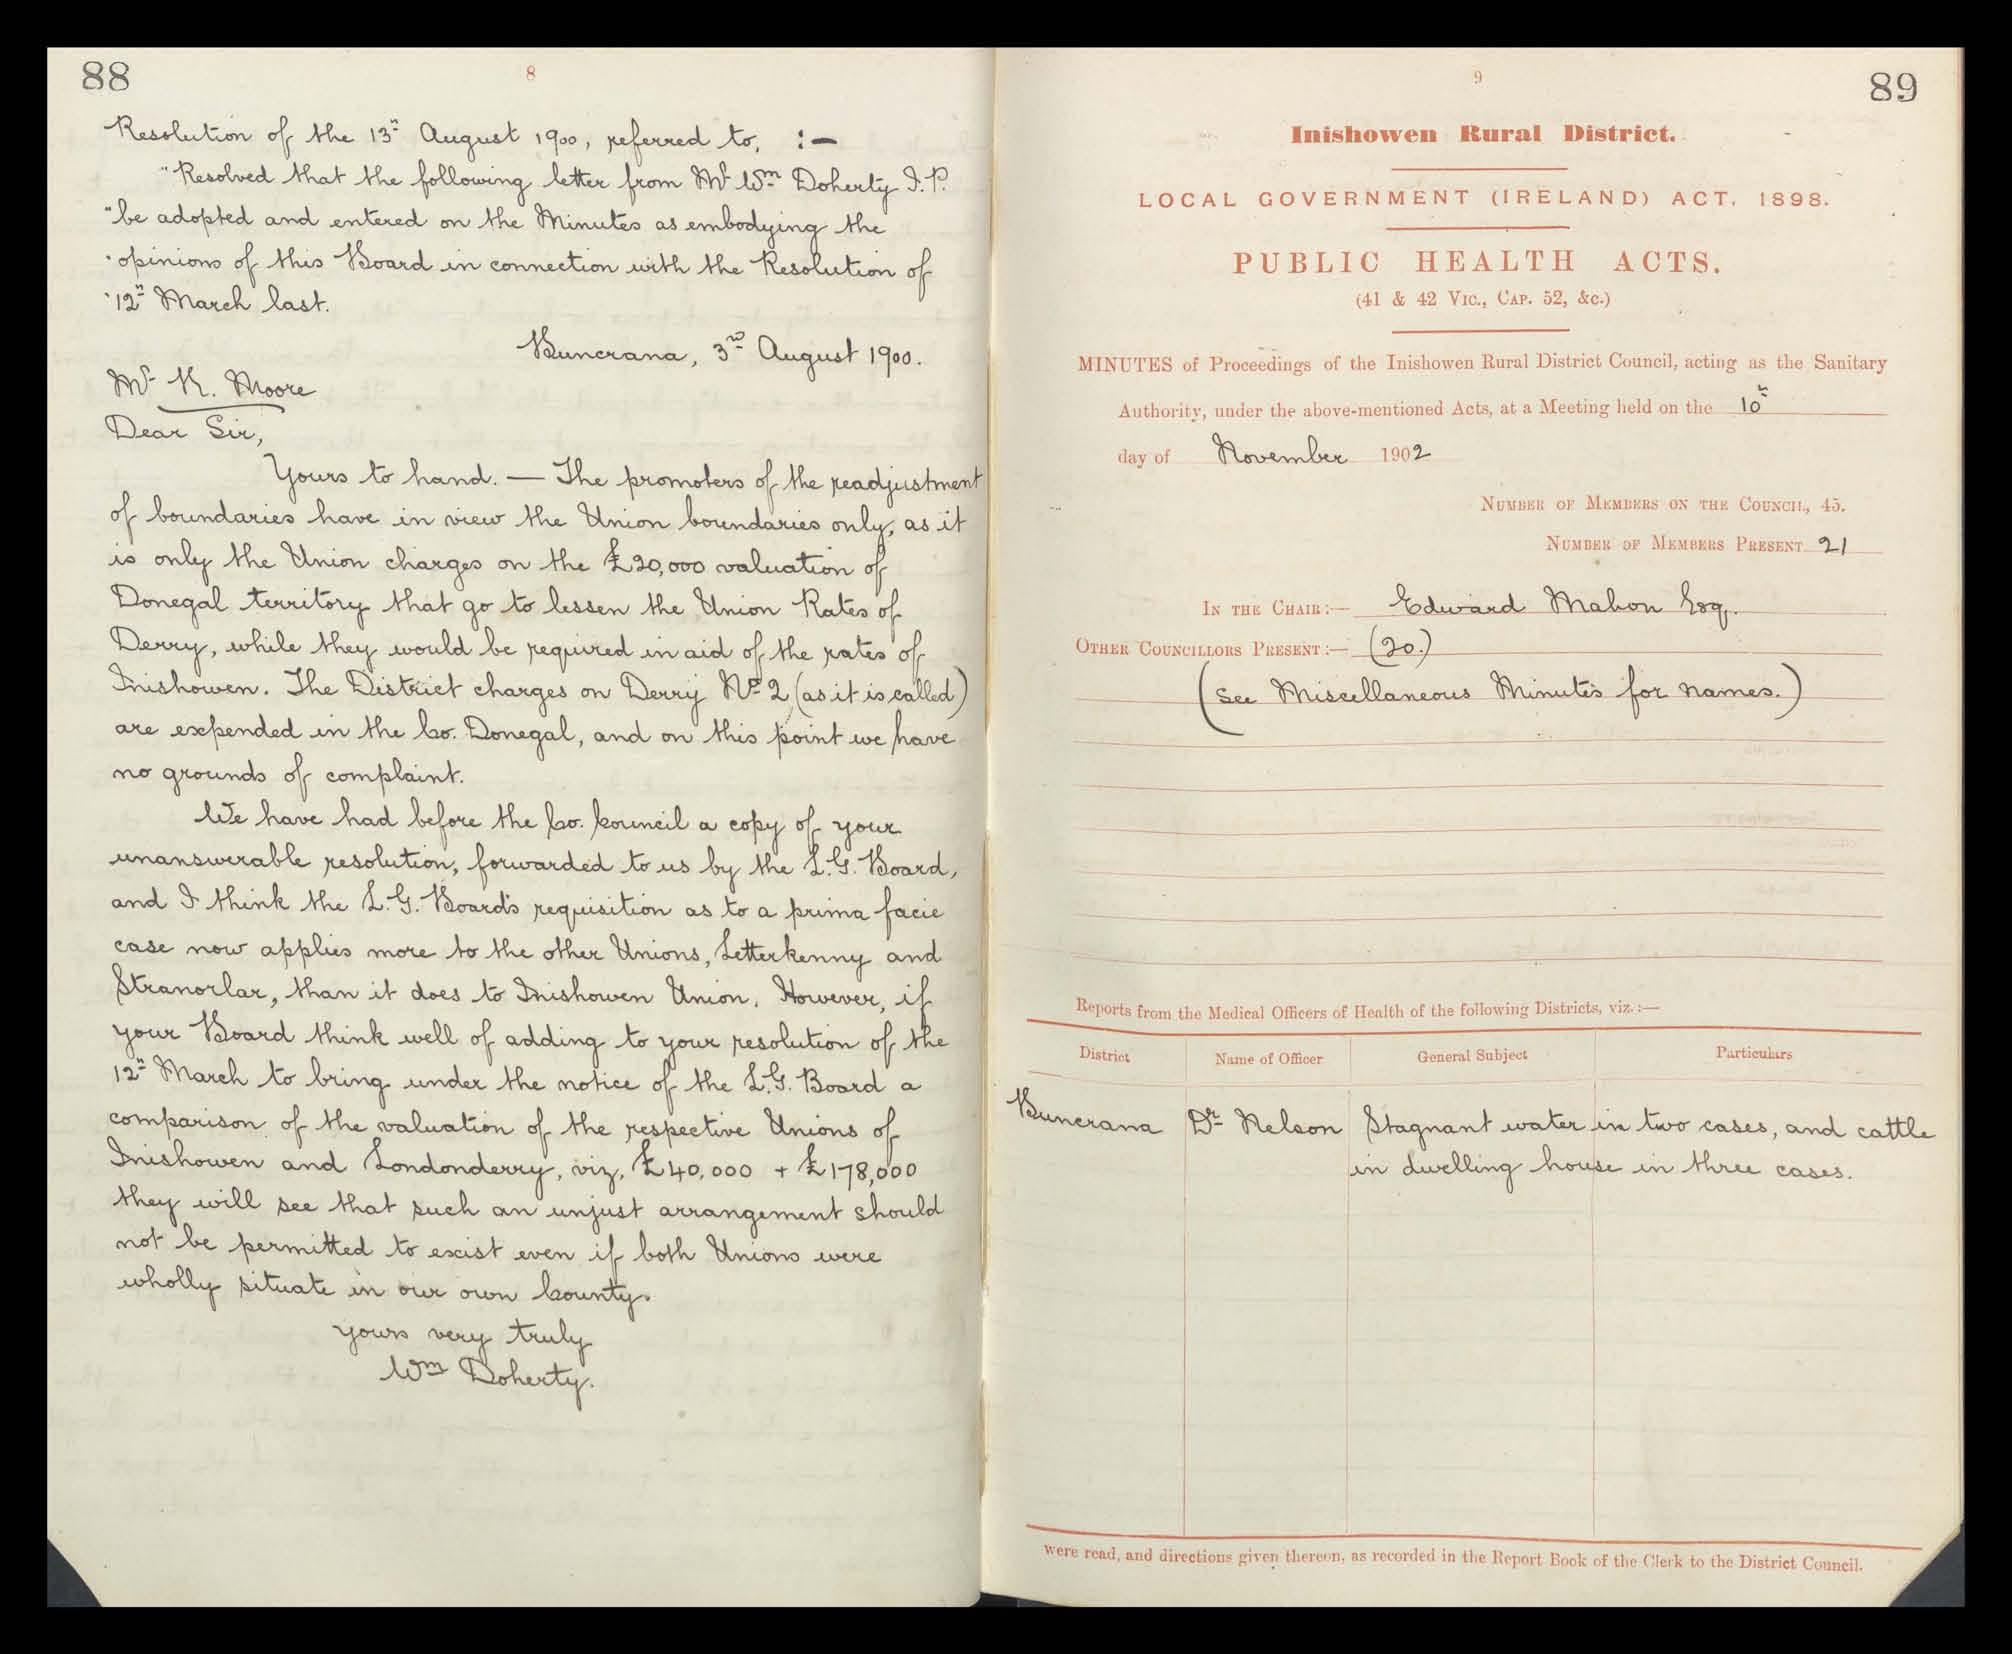 88
8
Resolution of the 13th August 1900, referred to, :—
"Resolved that the following letter from Mr Wm Doherty J.P.
"be adopted and entered on the Minutes as embodying the
"opinions of this Board in connection with the Resolution of
"12th March last.
Buncrana, 3rd August 1900.
Mr R. Moore
Dear Sir,
Yours to hand. — The promoters of the readjustment
of boundaries have in view the Union boundaries only, as it
is only the Union charges on the £20,000 valuation of
Donegal territory that go to lessen the Union Rates of
Derry, while they would be required in aid of the rates of
Inishowen. The District charges on Derry No 2 (as it is called)
are expended in the Co. Donegal, and on this point we have
no grounds of complaint.
We have had before the Co. Council a copy of your
unanswerable resolution, forwarded to us by the L.G. Board,
and I think the L.G. Board's requisition as to a prima facie
case now applies more to the other Unions, Letterkenny and
Stranorlar, than it does to Inishowen Union. However, if
your Board think well of adding to your resolution of the
12th March to bring under the notice of the L.G. Board a
comparison of the valuation of the respective Unions of
Inishowen and Londonderry, viz, £40,000 + £178,000
they will see that such an unjust arrangement should
not be permitted to exist even if both Unions were
wholly situate in our own County.
Yours very truly
Wm Doherty.
9
89
Inishowen Rural District.
LOCAL GOVERNMENT (IRELAND) ACT, 1898.
PUBLIC HEALTH ACTS.
(41 & 42 VIC., CAP. 52, &c.)
MINUTES of Proceedings of the Inishowen Rural District Council, acting as the Sanitary
Authority, under the above-mentioned Acts, at a Meeting held on the 10th
day of November 1902
NUMBER OF MEMBERS ON THE COUNCIL, 45.
NUMBER OF MEMBERS PRESENT 21
IN THE CHAIR:— Edward Mahon Esq.
OTHER COUNCILLORS PRESENT:— (20.)
(See Miscellaneous Minutes for names.)
Reports from the Medical Officers of Health of the following Districts, viz.:—
District Name of Officer General Subject Particulars
Buncrana Dr Nelson Stagnant water in two cases, and cattle
in dwelling house in three cases.
were read, and directions given thereon, as recorded in the Report Book of the Clerk to the District Council.